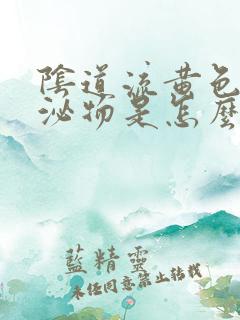 陰道流黃色
泌物是怎麼
藍精靈
未经同意禁止转载